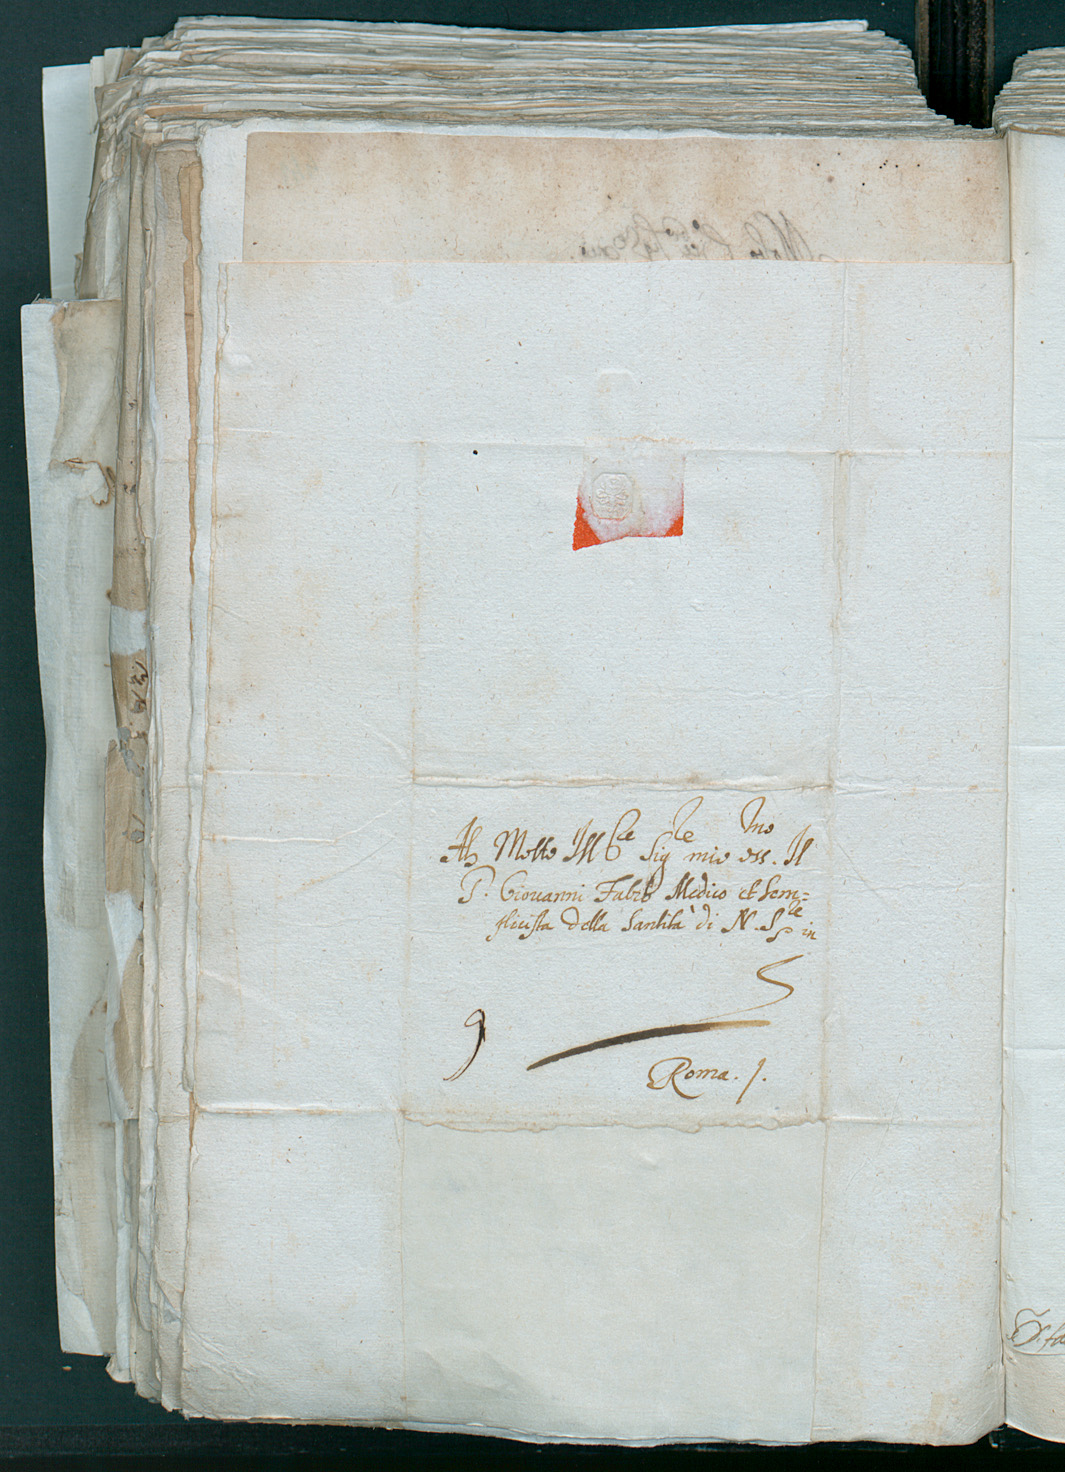 Al Molto Ill.re Sig.re mio oss.mo Il
S.r Giovanni Fabro Medico et Sem=
plicista della Santità di N. S.re in
Roma. /.